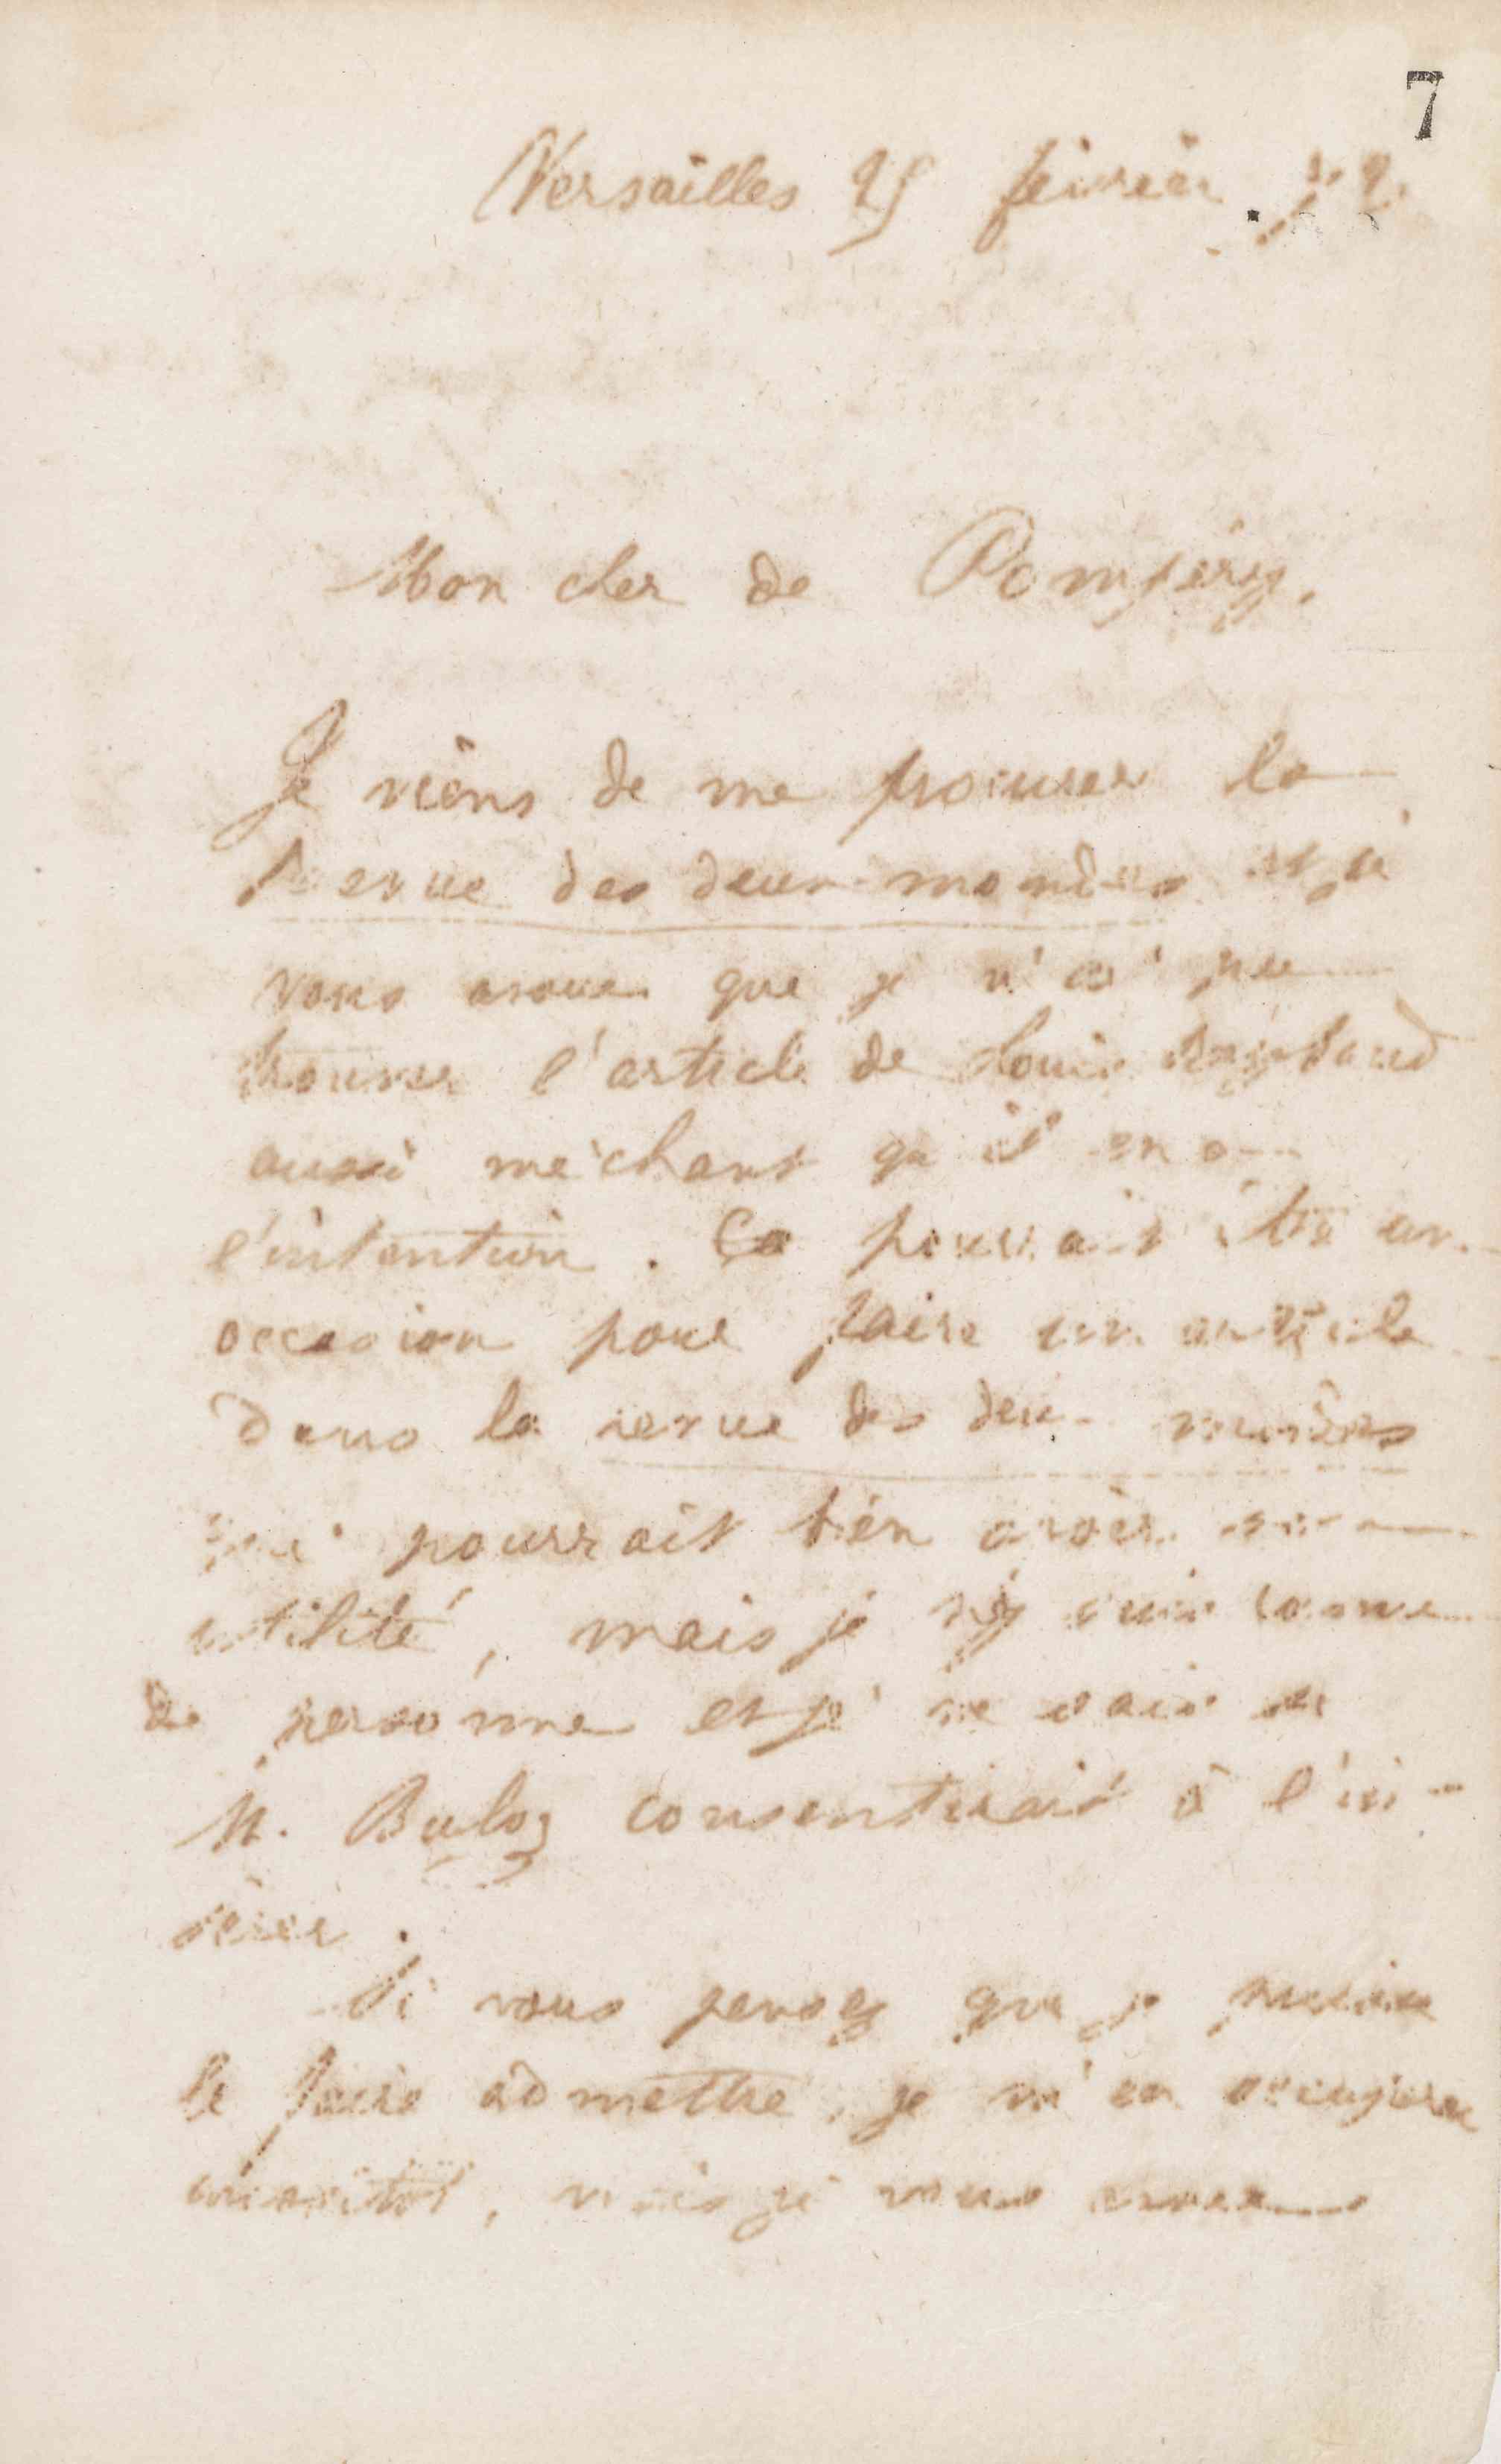 7
Versailles 25 février 72.
Mon cher de Pompéry,
Je viens de me procurer la
Revue des deux-mondes et je
vous avoue que je n'ai pu
trouver l'article de Louis Reybaud
aussi méchant qu'il en a
l'intention. Ce pourrait être une
occasion pour faire un article
dans la revue des deux mondes
qui pourrait bien avoir son
utilité, mais je n'y suis connu
de personne et je ne sais si
M. Buloz consentirait à l'in-
sérer.
Si vous pensez que je puisse
le faire admettre, je m'en occuperai
aussitôt, mais je vous avoue